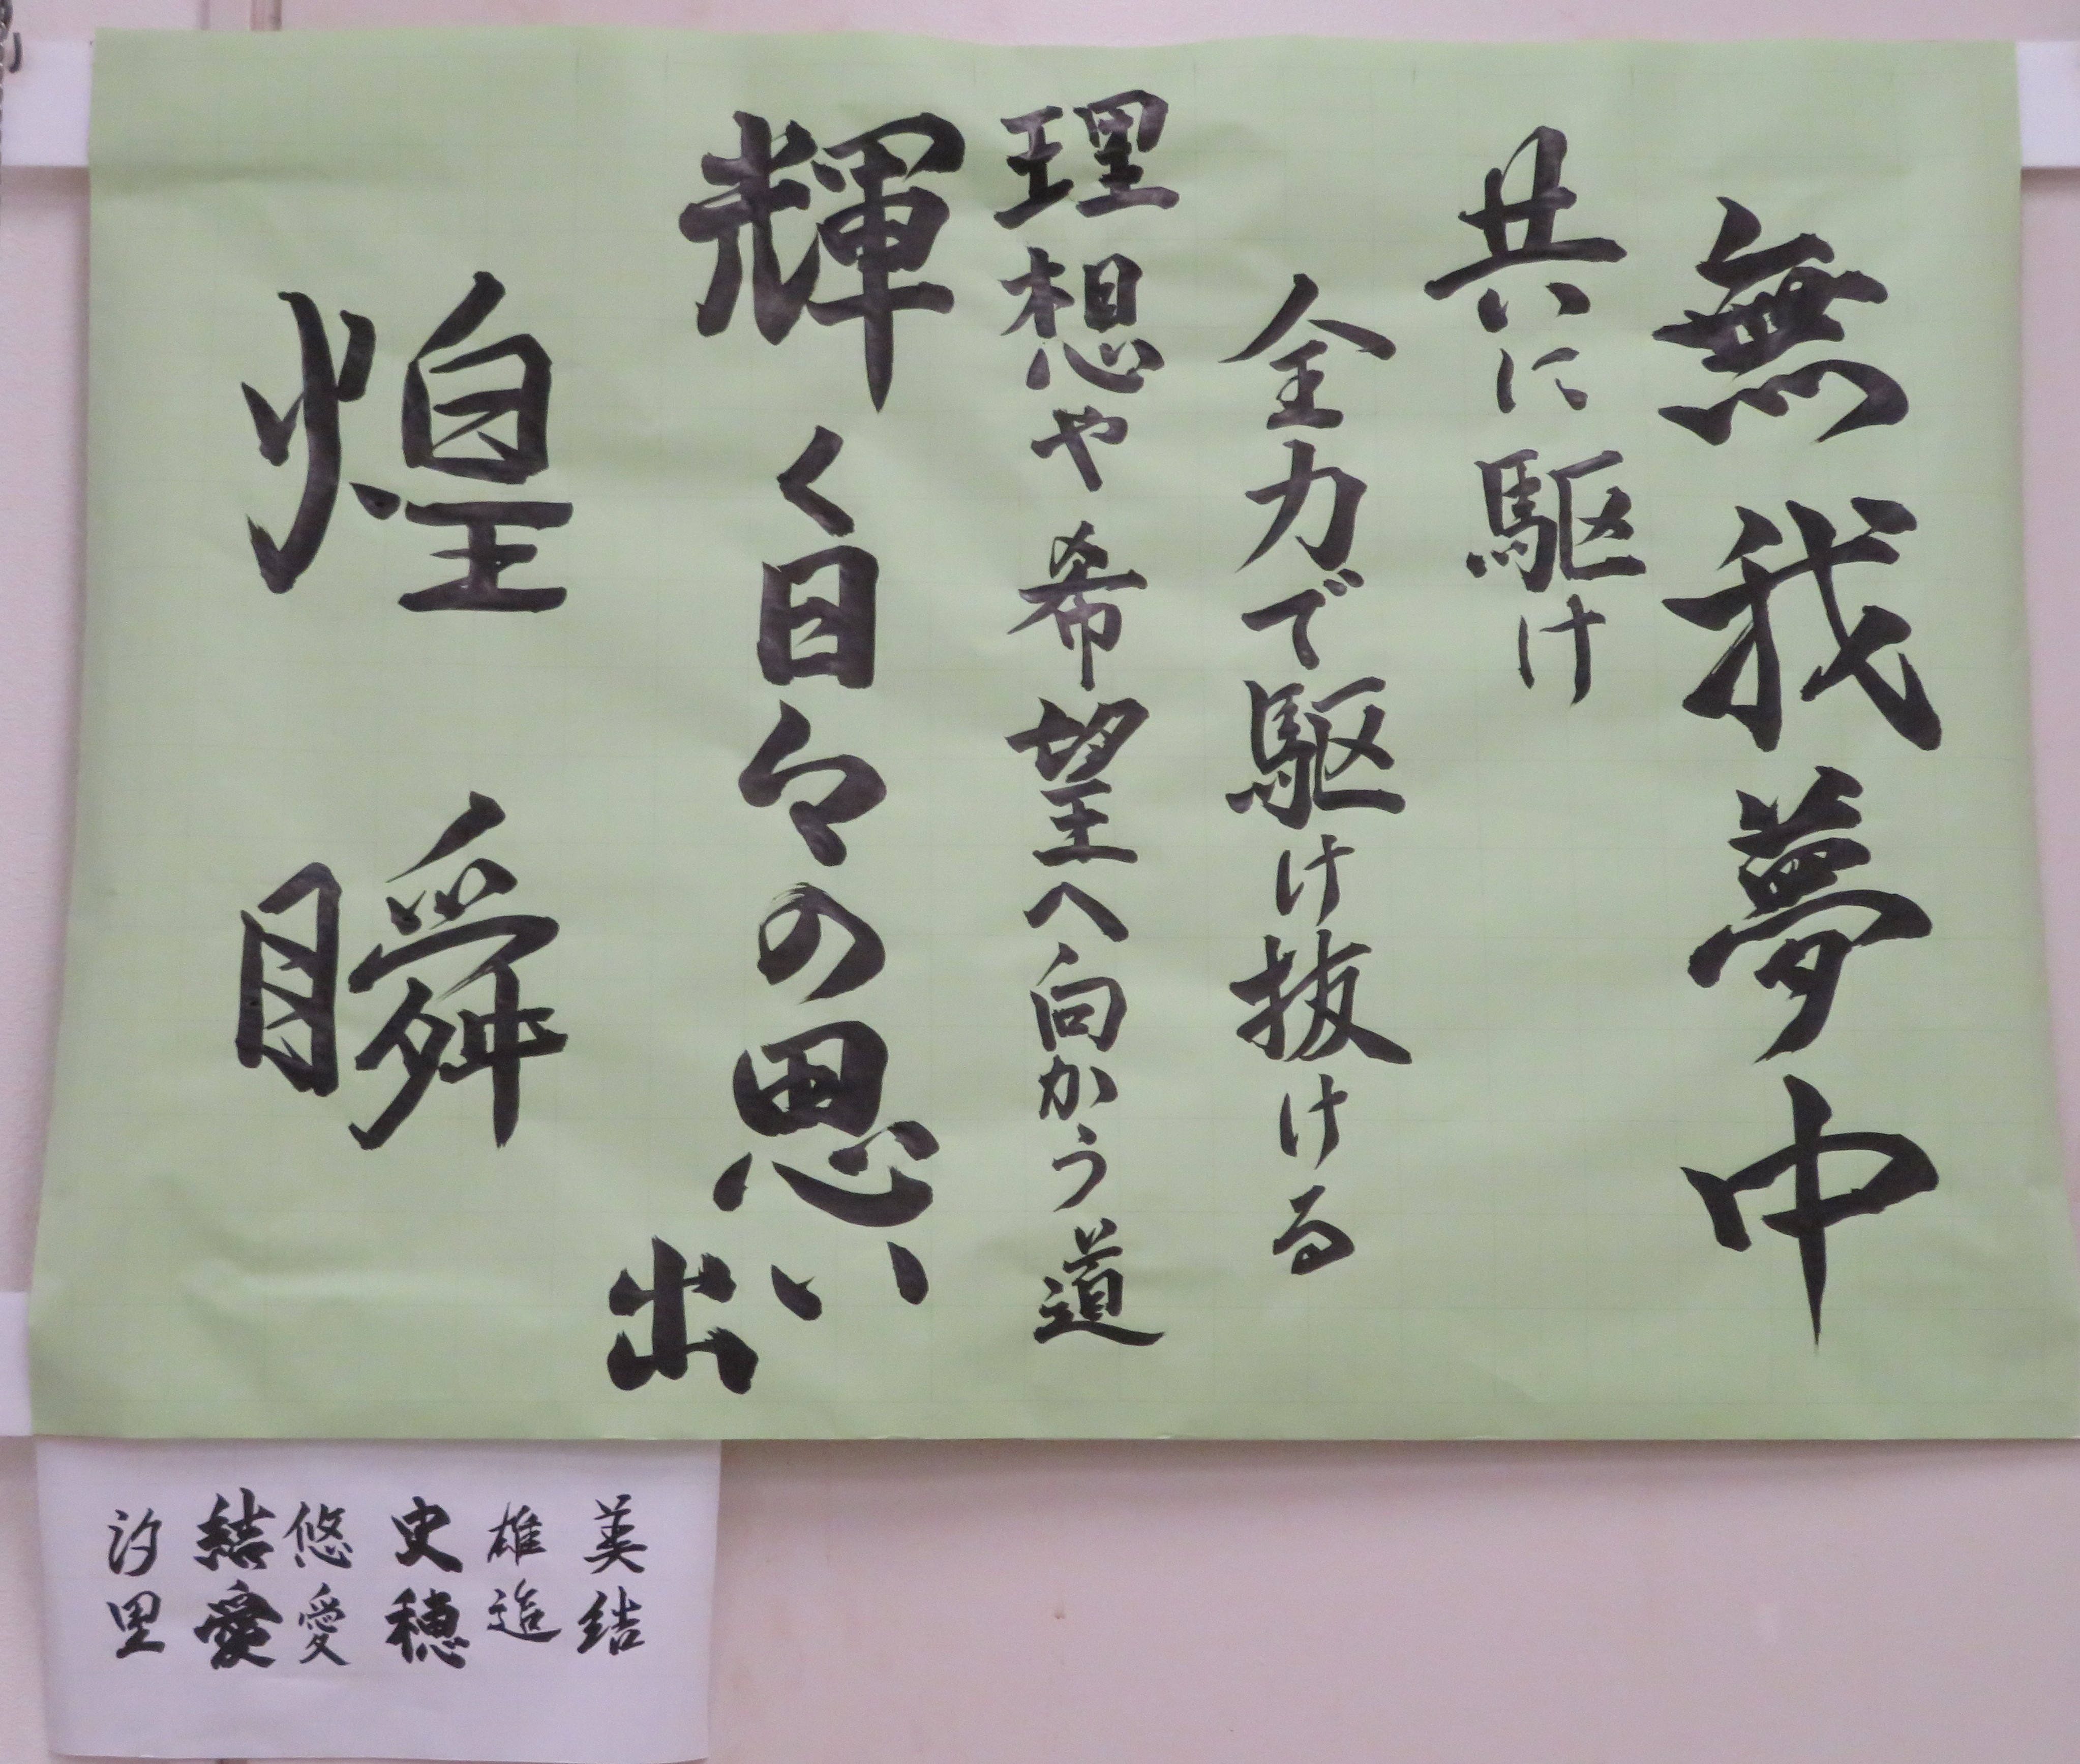 無我夢中
共に駆け
全力で駆け抜ける
理想や希望へ向かう道
輝く日々の思い出
煌瞬
美結
雄造
史穂
悠愛
結愛
汐里